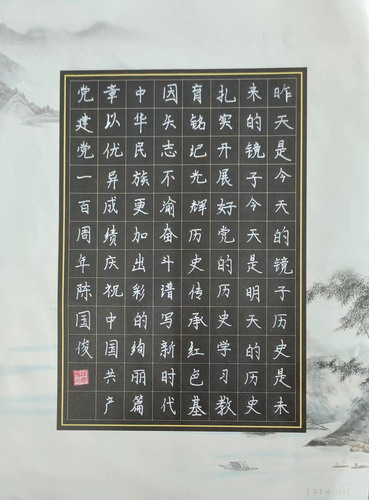 昨天是今天的镜子历史是未
来的镜子今天是明天的历史
扎实开展好党的历史学习教
育铭记光辉历史传承红色基
因矢志不渝奋斗谱写新时代
中华民族更加出彩的绚丽篇
章以优异成绩庆祝中国共产
党建党一百周年陈国俊